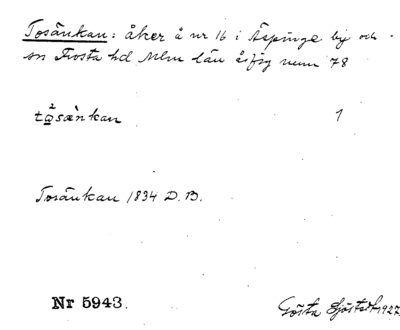 Tosänkan: åker å nr 16 i Äspinge by och
sn Frosta hd Mlm län ägfig numr 78
to²sæ̀nkan 1
Tosänkan 1834 D.B.
Nr 5943.
Gösta Sjöstedt 1927